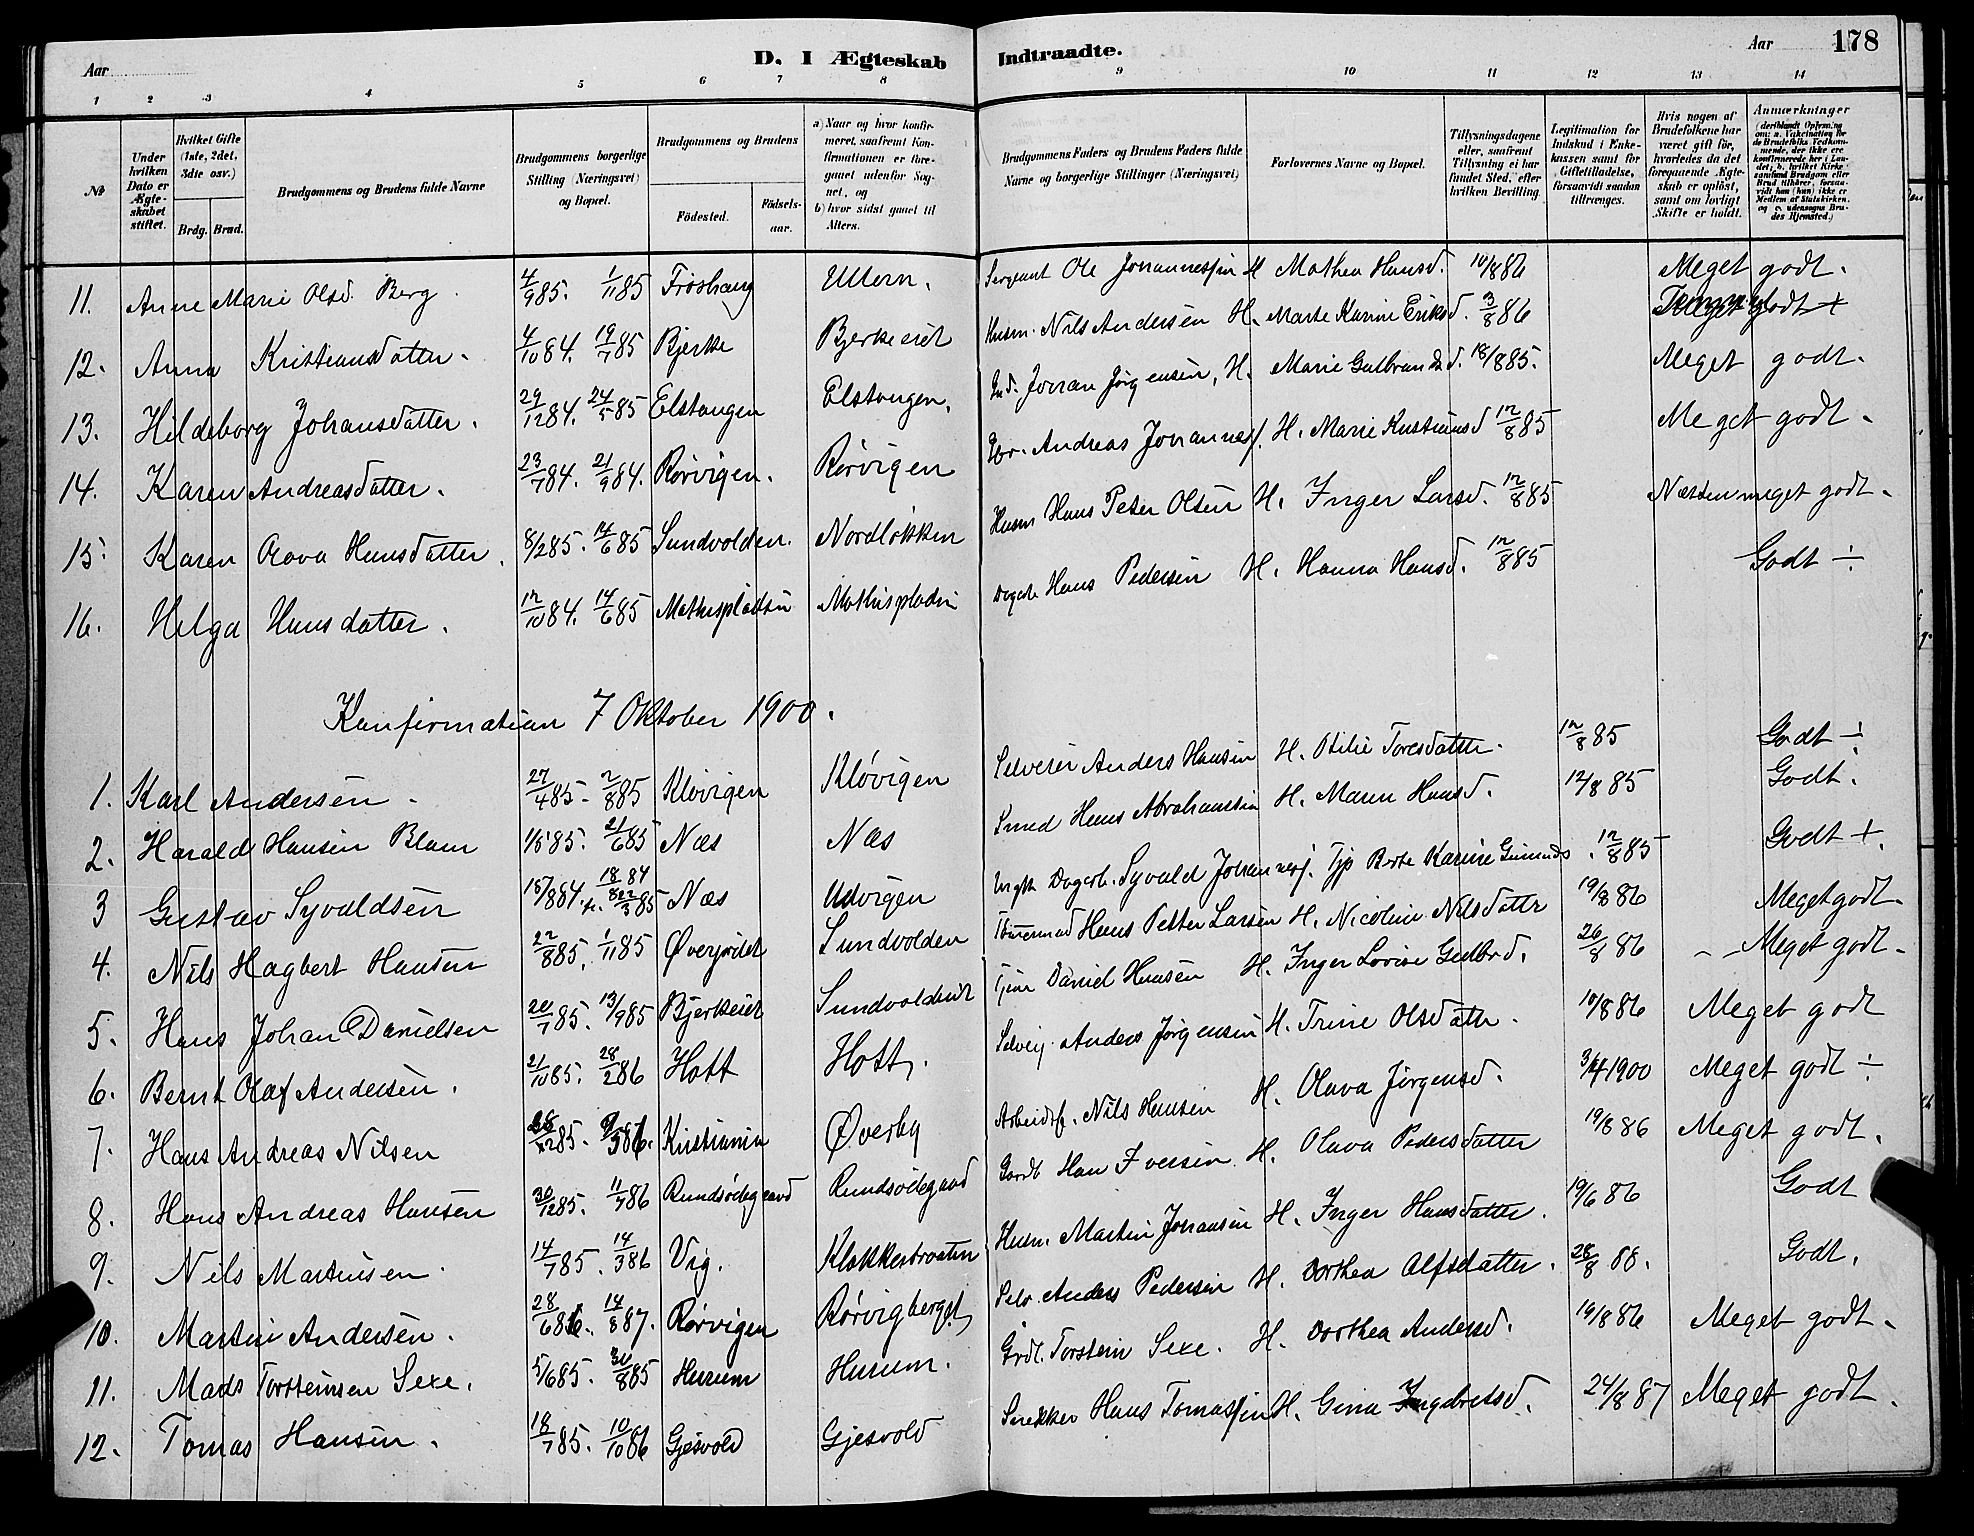 Aar
D. I Ægteskab
Indtraadte.
Aar 178
1 2 3 4 5 6 7 8 9 10 11 12 13 14
№
Under hvilken Dato er Ægteskabet stiftet.
Hvilket Gifte (1ste, 2det, 3die osv.)
Brdg. Brud.
Brudgommens og Brudens fulde Navne
Brudgommens borgerlige Stilling (Næringsvei) og Bopæl.
Brudgommens og Brudens
Fødested.
Fødselsaar.
a) Naar og hvor konfirmeret, saafremt Konfirmationen er foregaaet udenfor Sognet, og
b) hvor sidst gaaet til Alters.
Brudgommens Faders og Brudens Faders fulde Navne og borgerlige Stillinger (Næringsvei)
Forlovernes Navne og Bopæl.
Tillysningsdagene eller, saafremt Tillysning ei har fundet Sted, efter hvilken Bevilling.
Legitimation for Indskud i Enkekassen samt for Giftetilladelse, forsaavidt saadan tiltrænges.
Hvis nogen af Brudefolkene har været gift før, hvorledes da det foregaaende Ægteskab er opløst, samt om lovligt Skifte er holdt.
Anmærkninger
11. Anne Marie Olsd. Berg. 4/9 85. 1/11 85 Frøshaug Ullern. Sergeant Ole Johannessen H Mathea Hansd. 10/8 86 Meget godt.
12. Anna Kristiansdatter. 4/10 84. 19/7 85 Bjerke Bjerkeeiet Husm. Nils Andersen H. Marte Karine Eriksd. 3/8 86 godt +
13. Hildeborg Johansdatter. 29/12 84. 24/5 85 Elstangen Elstangen. Johan Jørgensen, H. Marie Gulbrandsd. 18/8 85. Meget godt.
14. Karen Andreasdatter. 23/7 84. 21/9 84. Rørvigen. Rørvigen Andreas Johannes. H. Marie Kristiansd 12/8 85 Meget godt.
15. Karen Olava Hansdatter. 8/2 85. 14/6 85 Sundvolden. Nordløkken Husm Hans Peter Olsen H. Inger Larsd. 12/8 85 Næsten meget godt.
16. Helga Hansdatter. 12/10 84. 14/6 85 Mathispladsen Mathispladsen Hans Pedersen H. Hanna Hansd. 12/8 85 Godt ÷
Konfirmation 7 Oktober 1900.
1. Karl Andersen. 27/4 85. 2/8 85 Kløvigen Kløvigen Selveier Anders Hansen H. Otilie Toresdatter. 12/8 85 Godt ÷
2. Harald Hansen Blam 1/5 85. 21/6 85 Næs Næs Smed Hans Abrahamsen H. Maren Hansd. 12/8 85 Godt.
3 Gustav Syvaldsen 15/8 84. 18/8 84 22/3 85 Næs Udvigen Ungk Dagarb. Syvald Johannes. Tjp Berte Karine 12/8 85 Godt +.
4. Nils Hagbert Hansen 22/8 85. 1/11 85 Øverjordet Sundvolden Hans Petter Larsen H. Nicoline Nilsdatter 19/8 86 Meget godt.
5. Hans Johan Danielsen 20/7 85. 13/9 85 Bjerkeeiet Daniel Hansen H. Inger Lovise Gulbrd. 26/8 86 - - Meget godt.
6. Bernt Olaf Andersen. 21/10 85. 28/2 86 Hott Hott. Selvej. Anders Jørgensen H. Trine Olsdatter. 10/8 86 Meget godt
7. Hans Andreas Nilsen Kristiania Øverby Arbeidsf. Nils Hansen H. Olava Jørgensd. 3/4 1900 Meget godt ÷
8. Hans Andreas Hansen 30/12 85. 11/7 86 Rundsødegaard Rundsødegaard Gaardb. Hans Iversen H. Olava Pedersdatter 19/8 86 Meget godt.
9. Nils Martinsen. 14/7 85. 14/3 86 Vig. Klokkerbraaten Husm. Martin Johansen H. Inger Hansdatter. 19/6 86 Godt
10. Martin Andersen. 28/6 86. 14/8 87. Rørvigen Rørvigberget Selv. Anders Pedersen H. Dorthea Alfsdatter. 28/8 88. Godt.
11. Mads Torsteinsen Sexe. 5/6 85. 30/8 85 Hurum Hurum. Grdb. Torstein Sexe. H. Dorthea Andersd. 19/8 86 Meget godt.
12. Tomas Hansen. 18/7 85. 10/10 86 Gjesvold Gjesvold Snekker Hans Tomassen H. Gina Ingebretsd. 24/8 87 Meget godt.